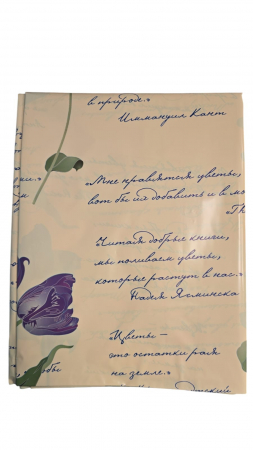 в природе.»
Иммануил Кант
«Мне нравятся цветы,
вот бы их добавить и в мо
«Читая добрые книги,
мы поливаем цветы,
которые растут в нас.»
Надея Ясминска
«Цветы –
это остатки рая
на земле.»